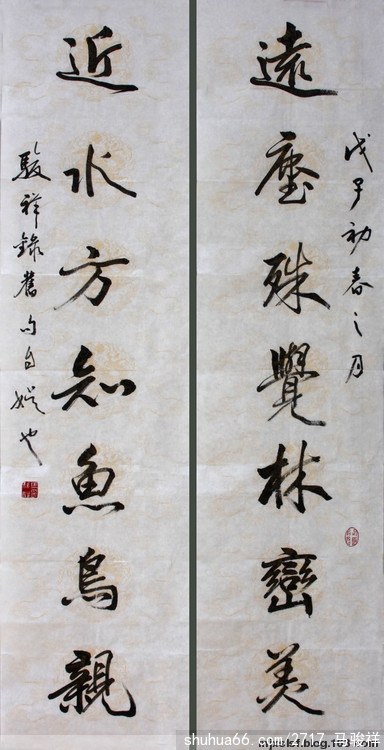 戊子初春之月
遠塵殊覺林巒美
近水方知魚鳥親
駿祥錄舊句自娛也
shuhua66.com/2717 马骏祥